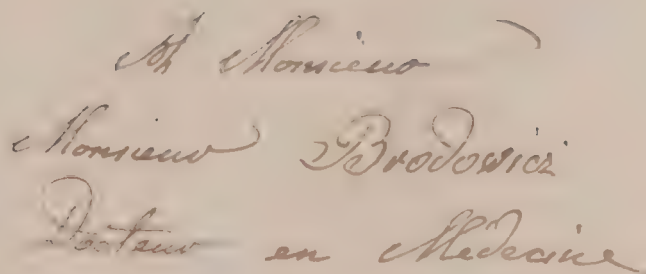 A Monsieur
Monsieur Brodowicz
Docteur en Medecine